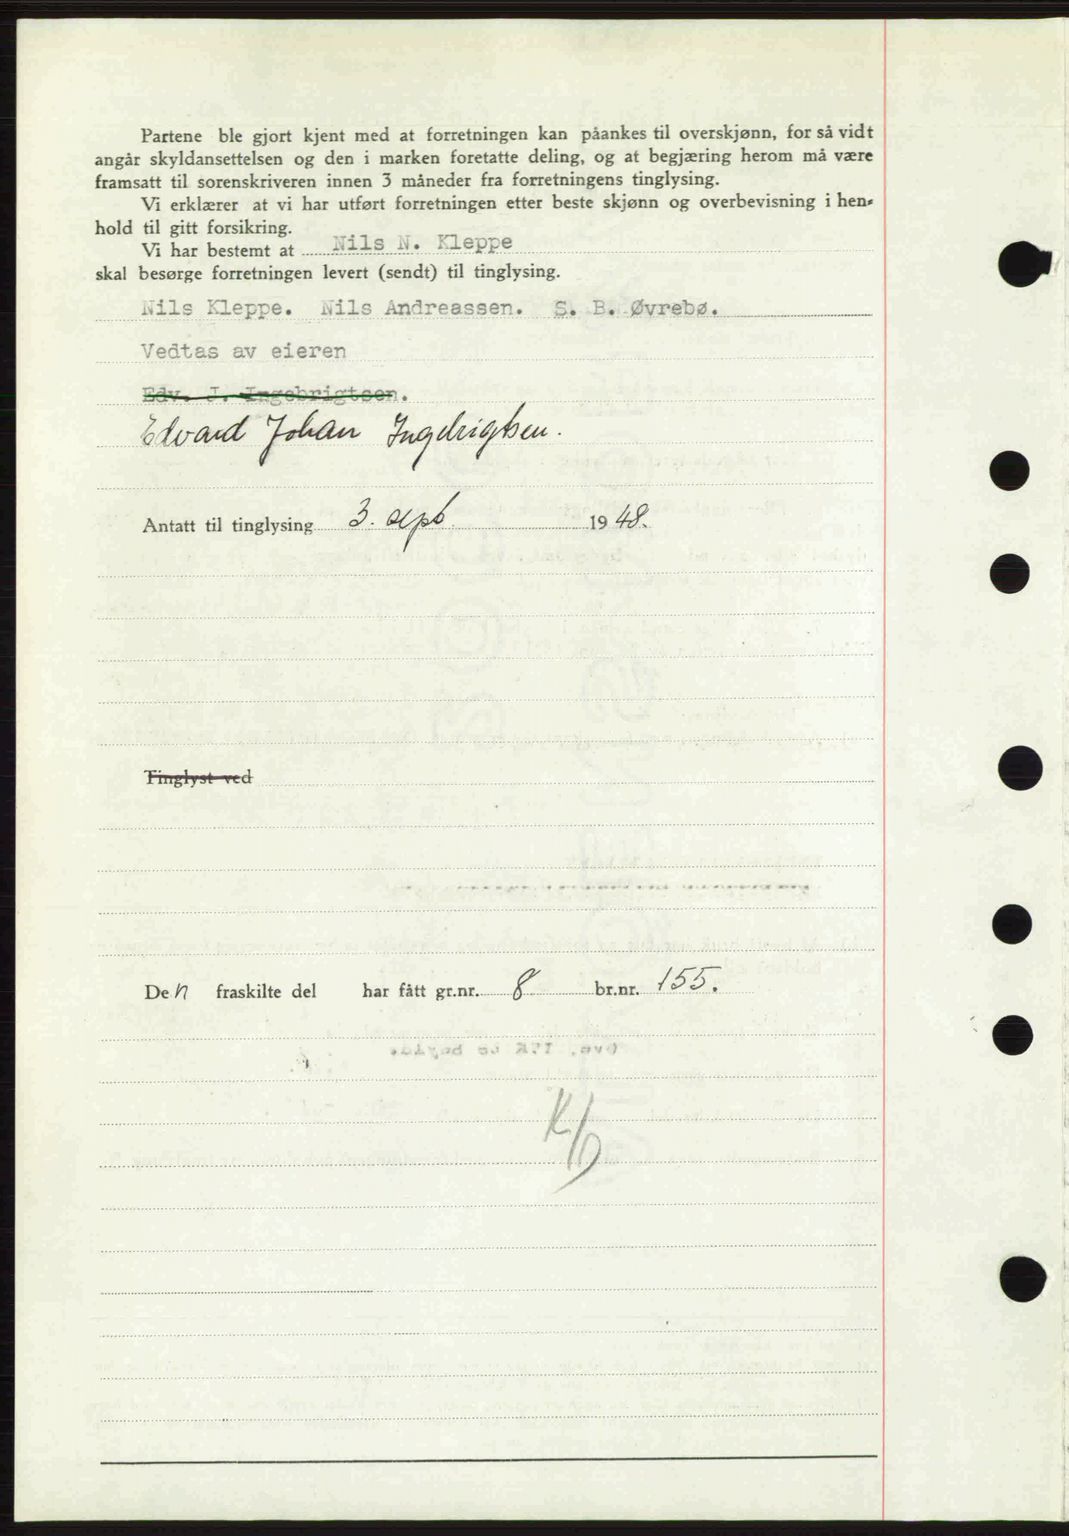 Partene ble gjort kjent med at forretningen kan påankes til overskjønn, for så vidt
angår skyldansettelsen og den i marken foretatte deling, og at begjæring herom må være
framsatt til sorenskriveren innen 3 måneder fra forretningens tinglysing.
Vi erklærer at vi har utført forretningen etter beste skjønn og overbevisning i hen-
hold til gitt forsikring.
Vi har bestemt at Nils N. Kleppe
skal besørge forretningen levert (sendt) til tinglysing.
Nils Kleppe. Nils Andreassen. S. B. Øvrebø.
Vedtas av eieren
Edv. J. Ingebrigtsen.
Edvard Johan Ingebrigtsen.
Antatt til tinglysing 3. sept. 1948.
Tinglyst ved
Den fraskilte del har fått gr.nr. 8 br.nr. 155.